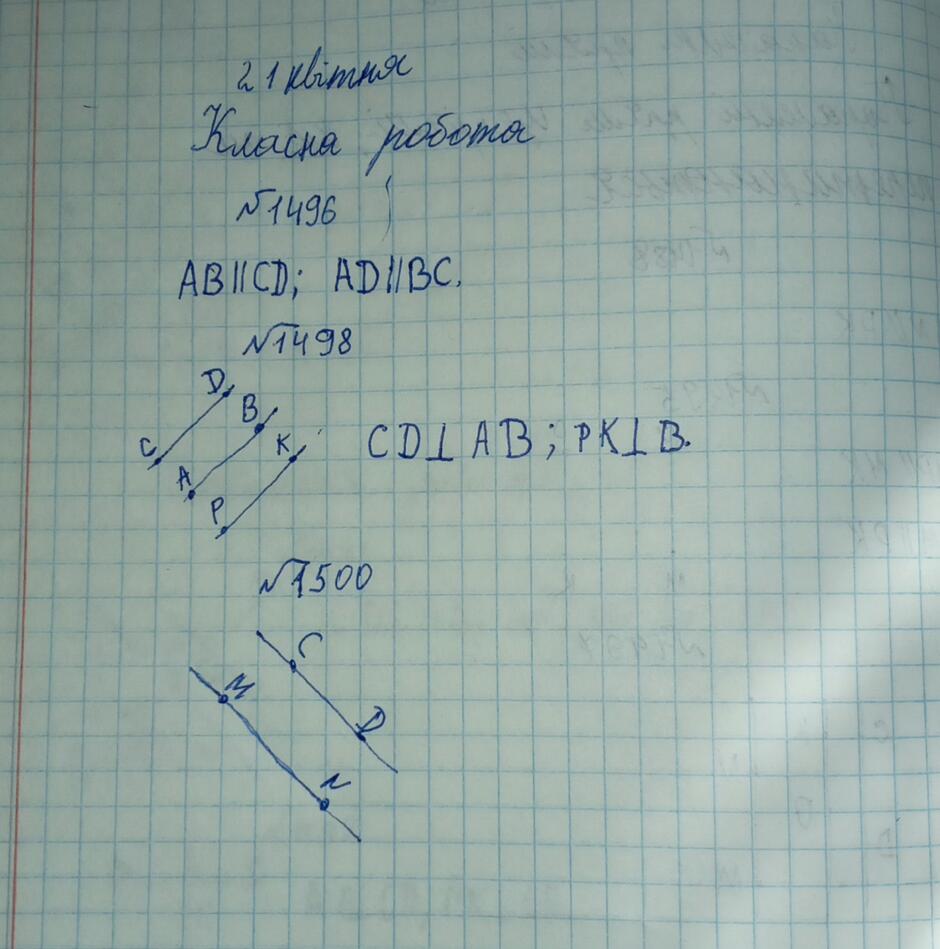 21 квітня
Класна робота
№1496
AB||CD; AD||BC.
№1498
D
B
C
K
A
P
CD⊥AB; PK⊥B.
№1500
C
M
D
N